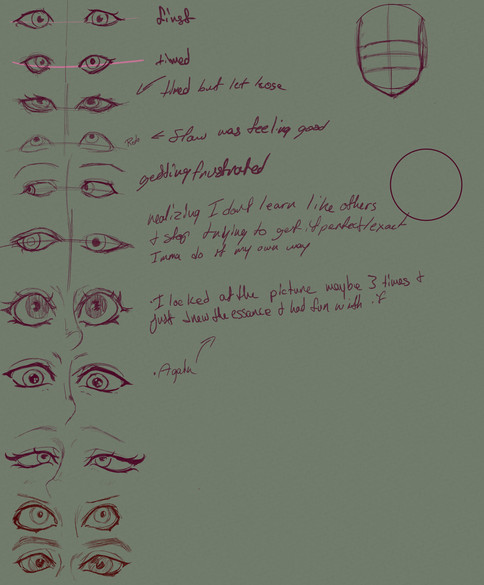 first
timed
tired but let loose
Rah ← flow was feeling good
getting frustrated
realizing I dont learn like others
& stop trying to get it perfect/exact
Imma do it my own way
• I looked at the picture maybe 3 times &
just drew the essance & had fun with it
• Again